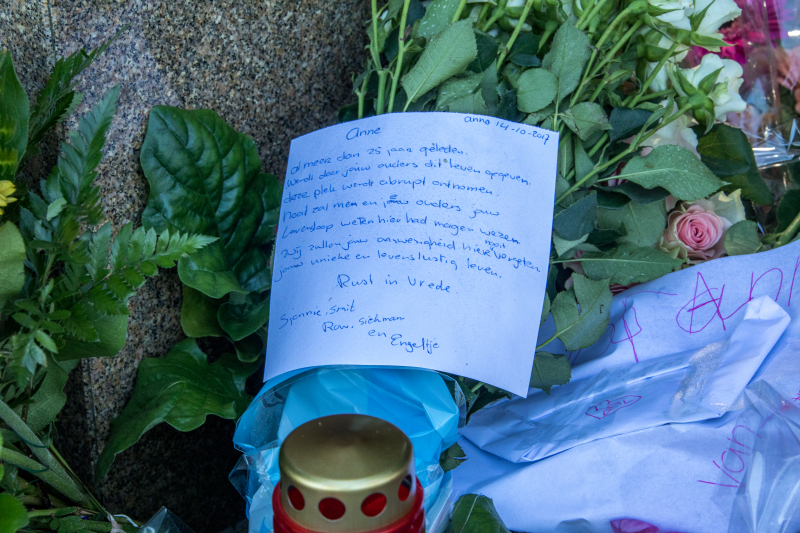 Anne
anno 14-10-2017
al meer dan 25 jaar geleden.
Werdt door jouw ouders dit leven gegeven.
deze plek werdt abrupt ontnomen.
Nooit zal men en je ouders jouw
Levensloop weten hier had mogen wezen
Wij zullen jouw aanwezigheid hier nooit vergeten
jouw unieke en levenslustig leven.
Rust in Vrede.
Sjennie, Smit
Row. Siekman
en Engeltje
van